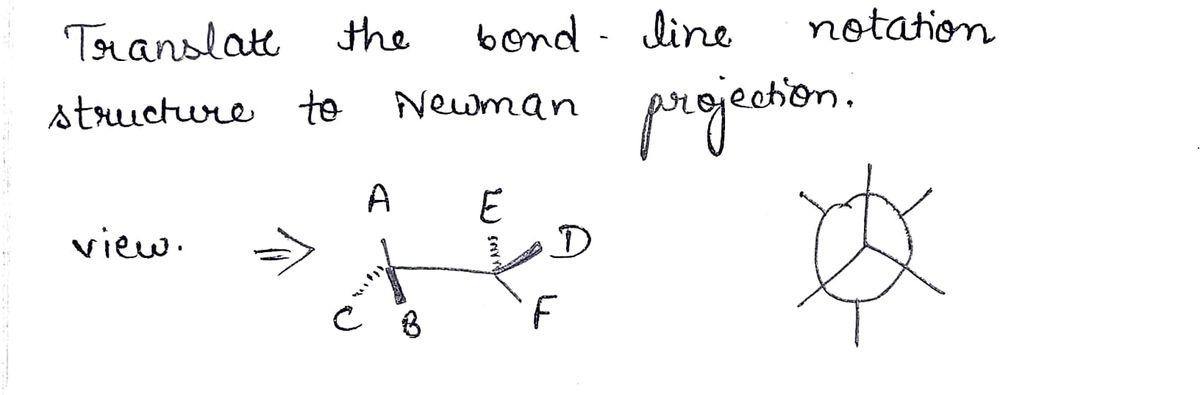 Translate the bond - line notation
structure to Newman projection.
A E
view. ⇒ D
C B F